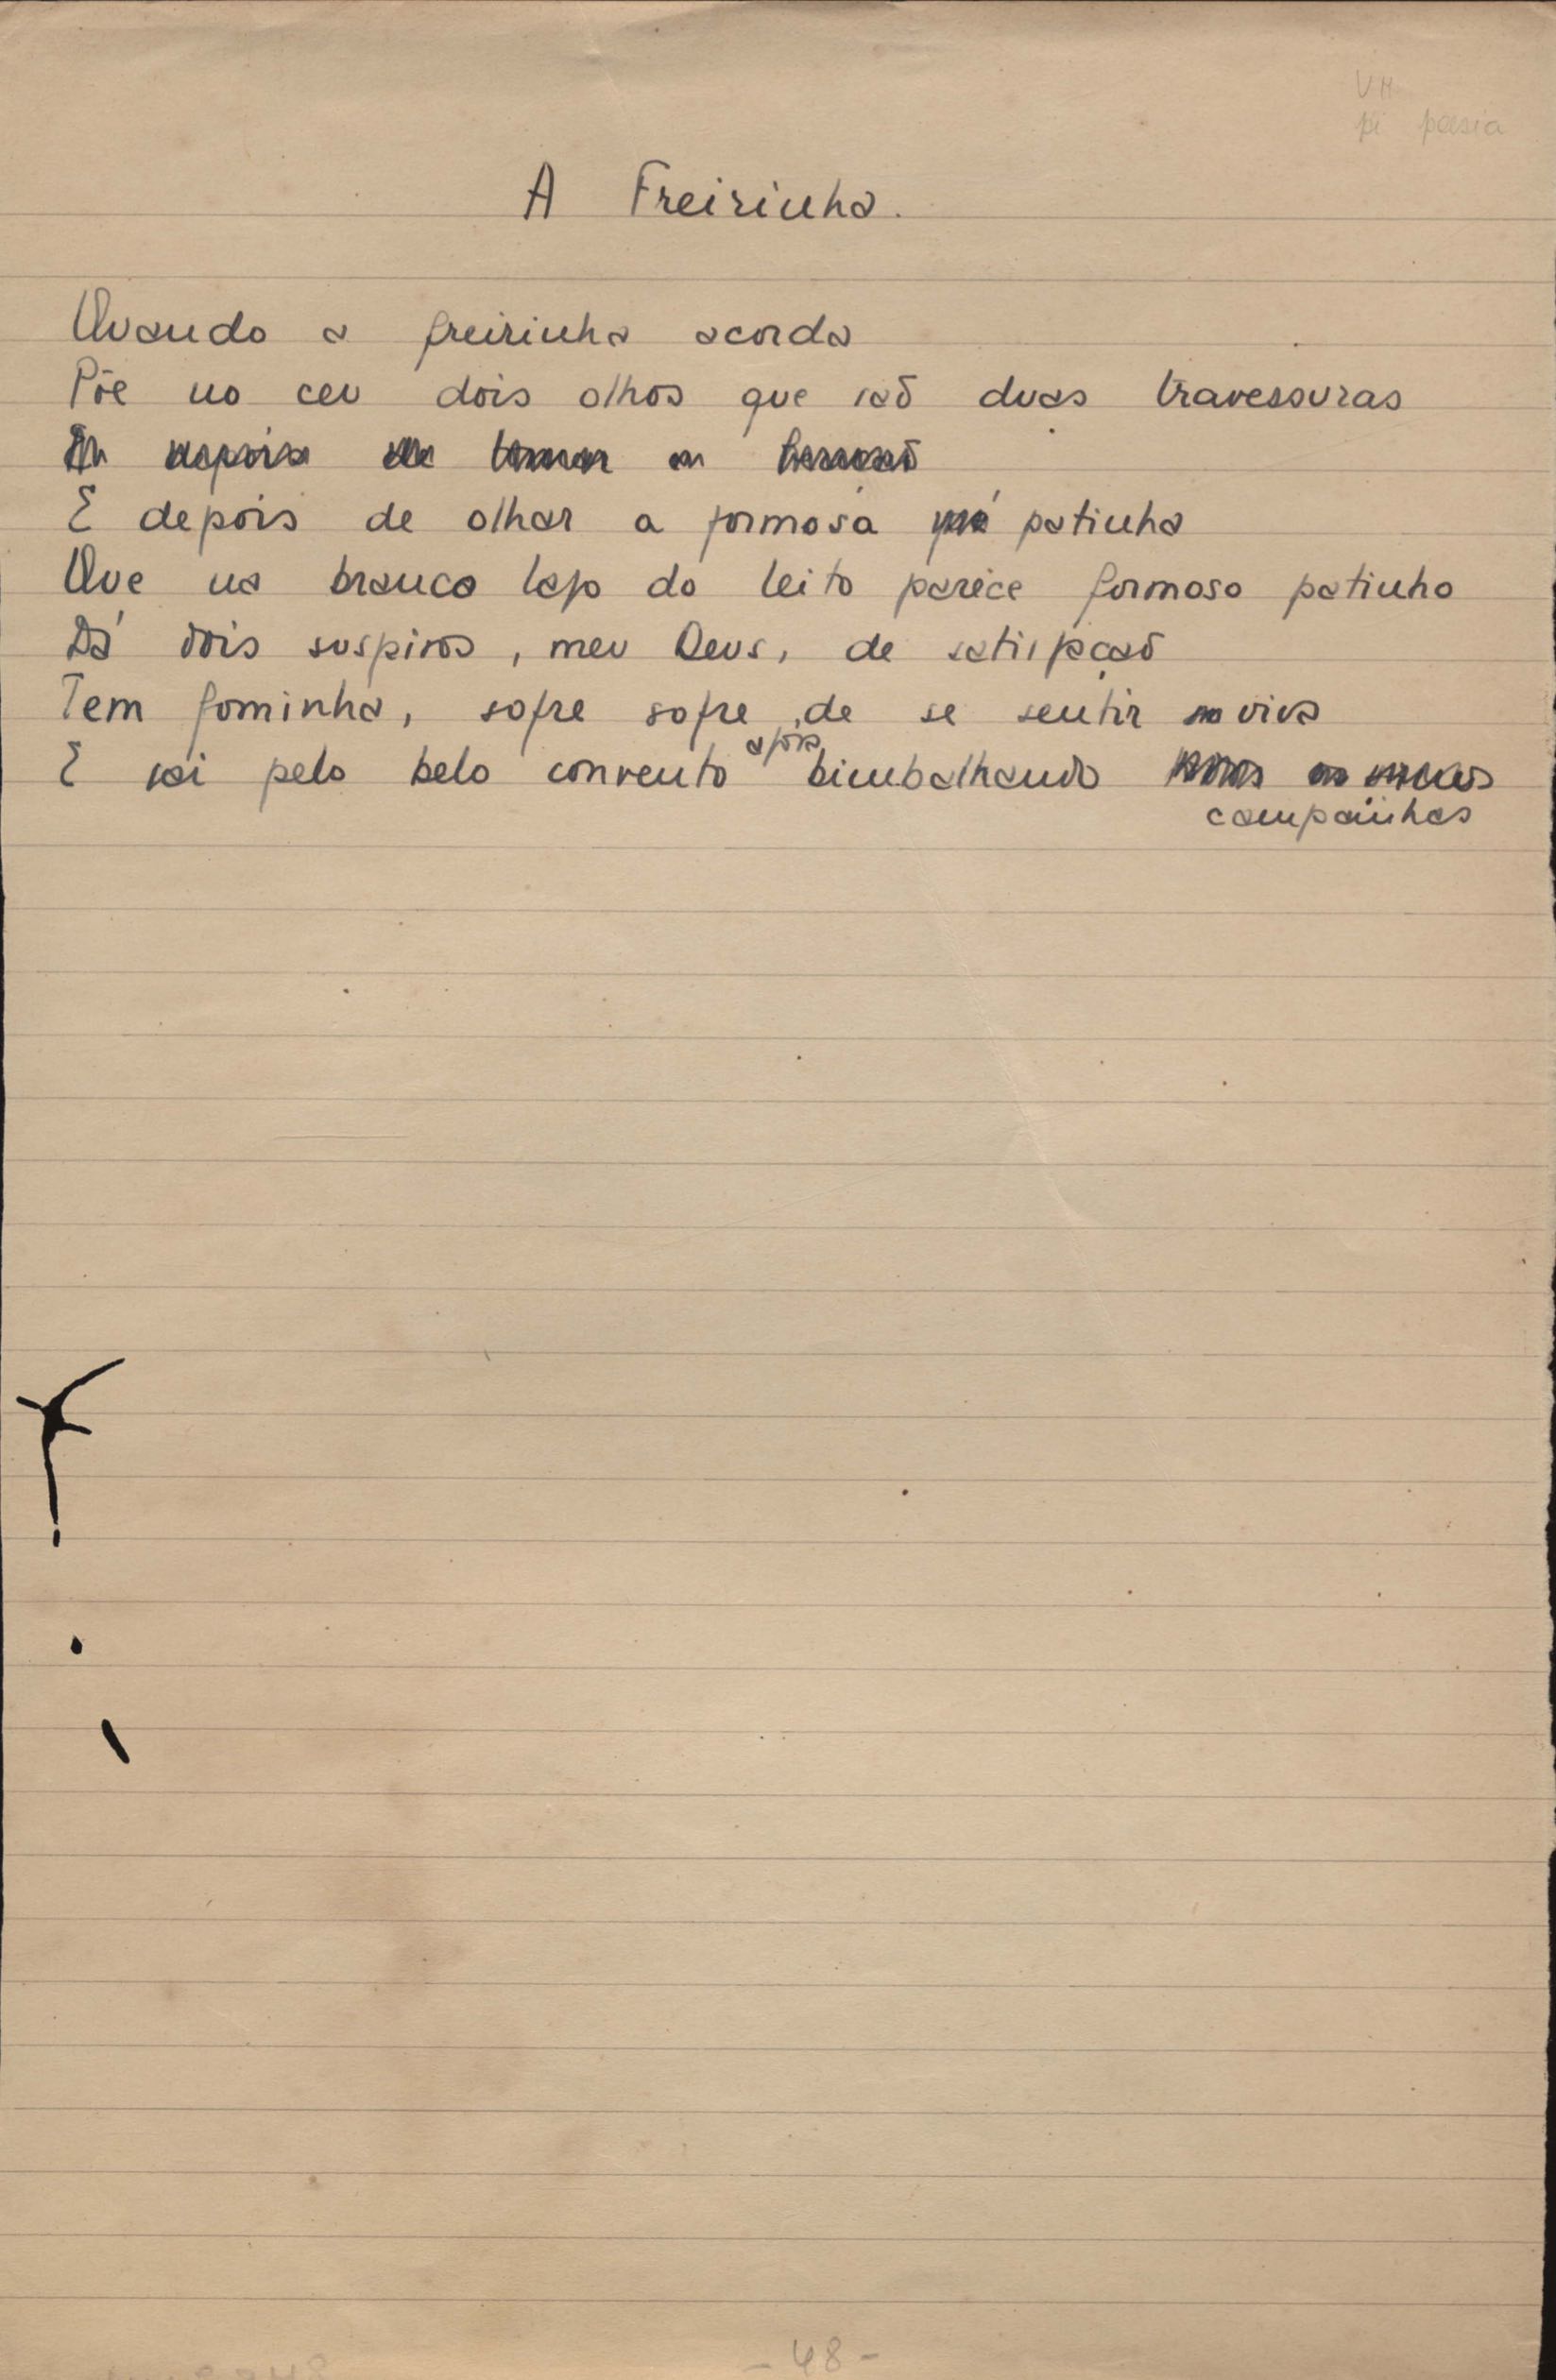 VM
pi poesia
A Freirinha.
Quando a freirinha acorda
Põe no ceu dois olhos que saõ duas travessuras
E depois de tomar a
E depois de olhar a formosa patinha
Que na branca laje do leito parece formoso patinho
Dá dois suspiros, meu Deus, de satisfaçaõ
Tem fominha, sofre sofre de se sentir viva
E sai pelo belo convento após bimbalhando
campaínhas
- 48 -